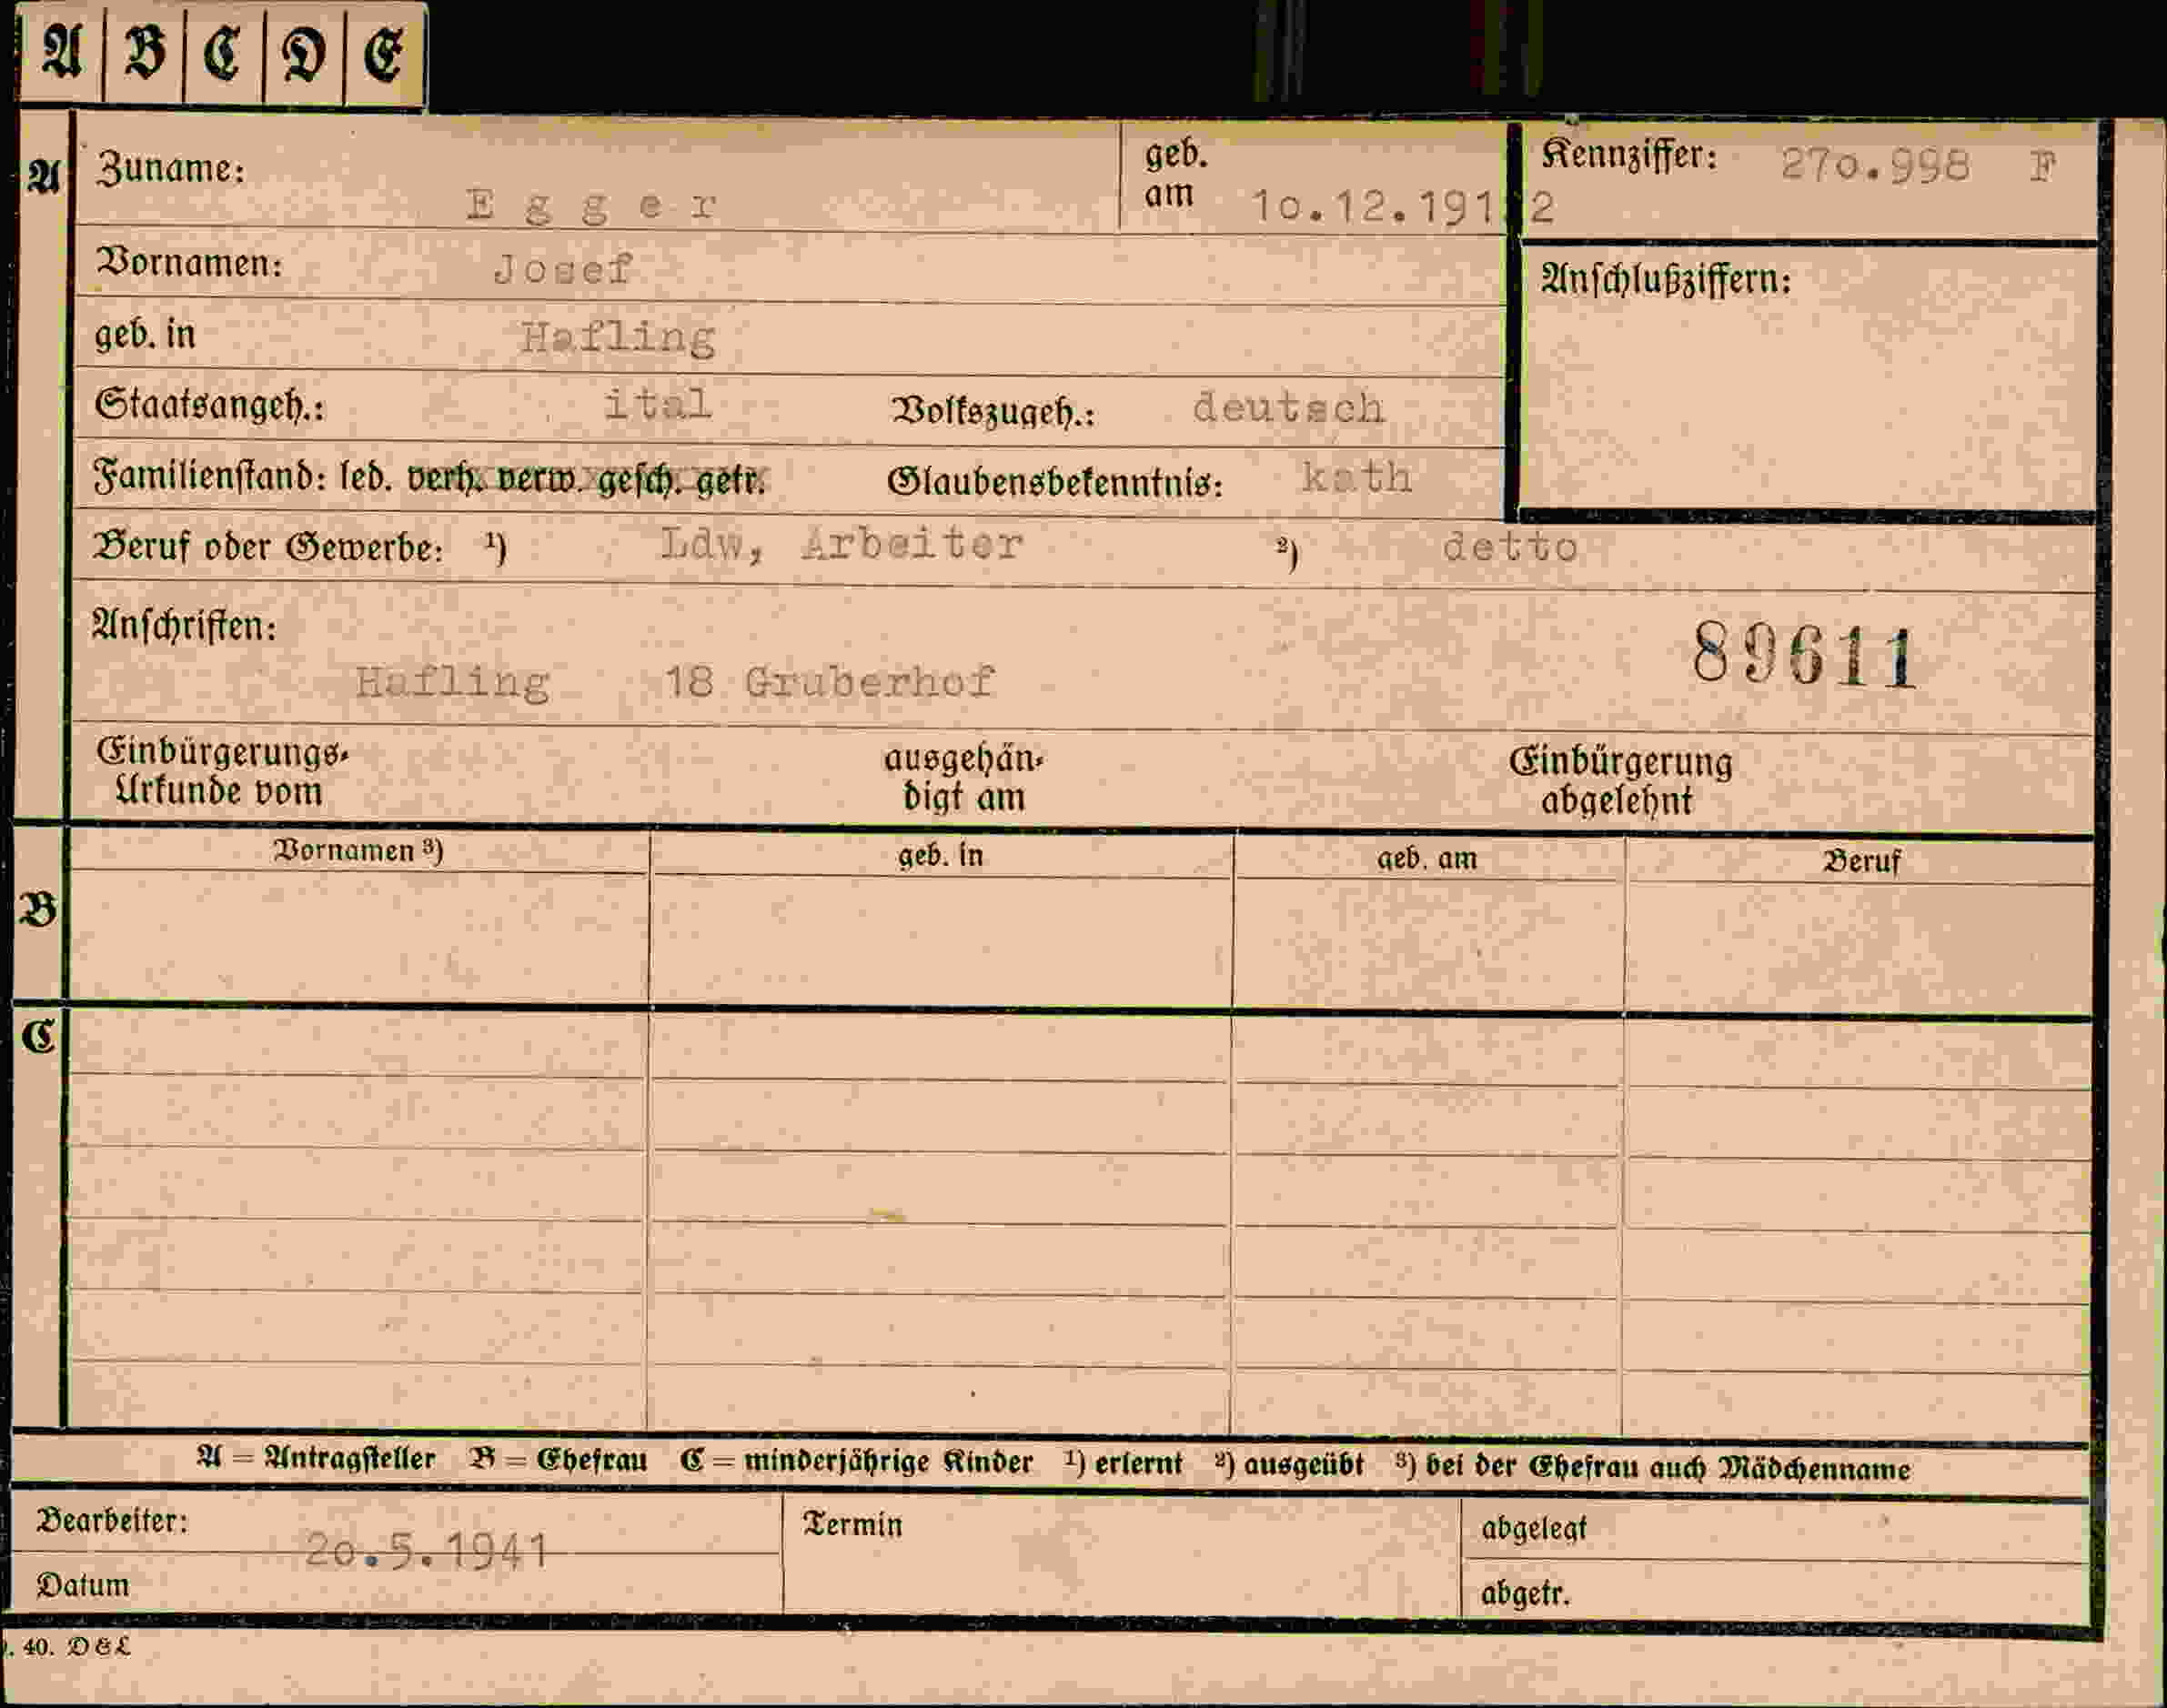 A B C D E
A Zuname: E g g e r geb. am 10.12.1912 Kennziffer: 270.998 F
Vornamen: Josef Anschlußziffern:
geb. in Hafling
Staatsangeh.: ital Volkszugeh.: deutsch
Familienstand: led. verh. verw. gesch. getr. Glaubensbekenntnis: kath
Beruf oder Gewerbe: ¹) Ldw, Arbeiter ²) detto
Anschriften: 89611
Hafling 18 Gruberhof
Einbürgerungs- ausgehän- Einbürgerung
Urkunde vom digt am abgelehnt
Vornamen ³) geb. in geb. am Beruf
B
C
A = Antragsteller B = Ehefrau C = minderjährige Kinder ¹) erlernt ²) ausgeübt ³) bei der Ehefrau auch Mädchenname
Bearbeiter: Termin abgelegt
20.5.1941
Datum abgetr.
. 40. D & L